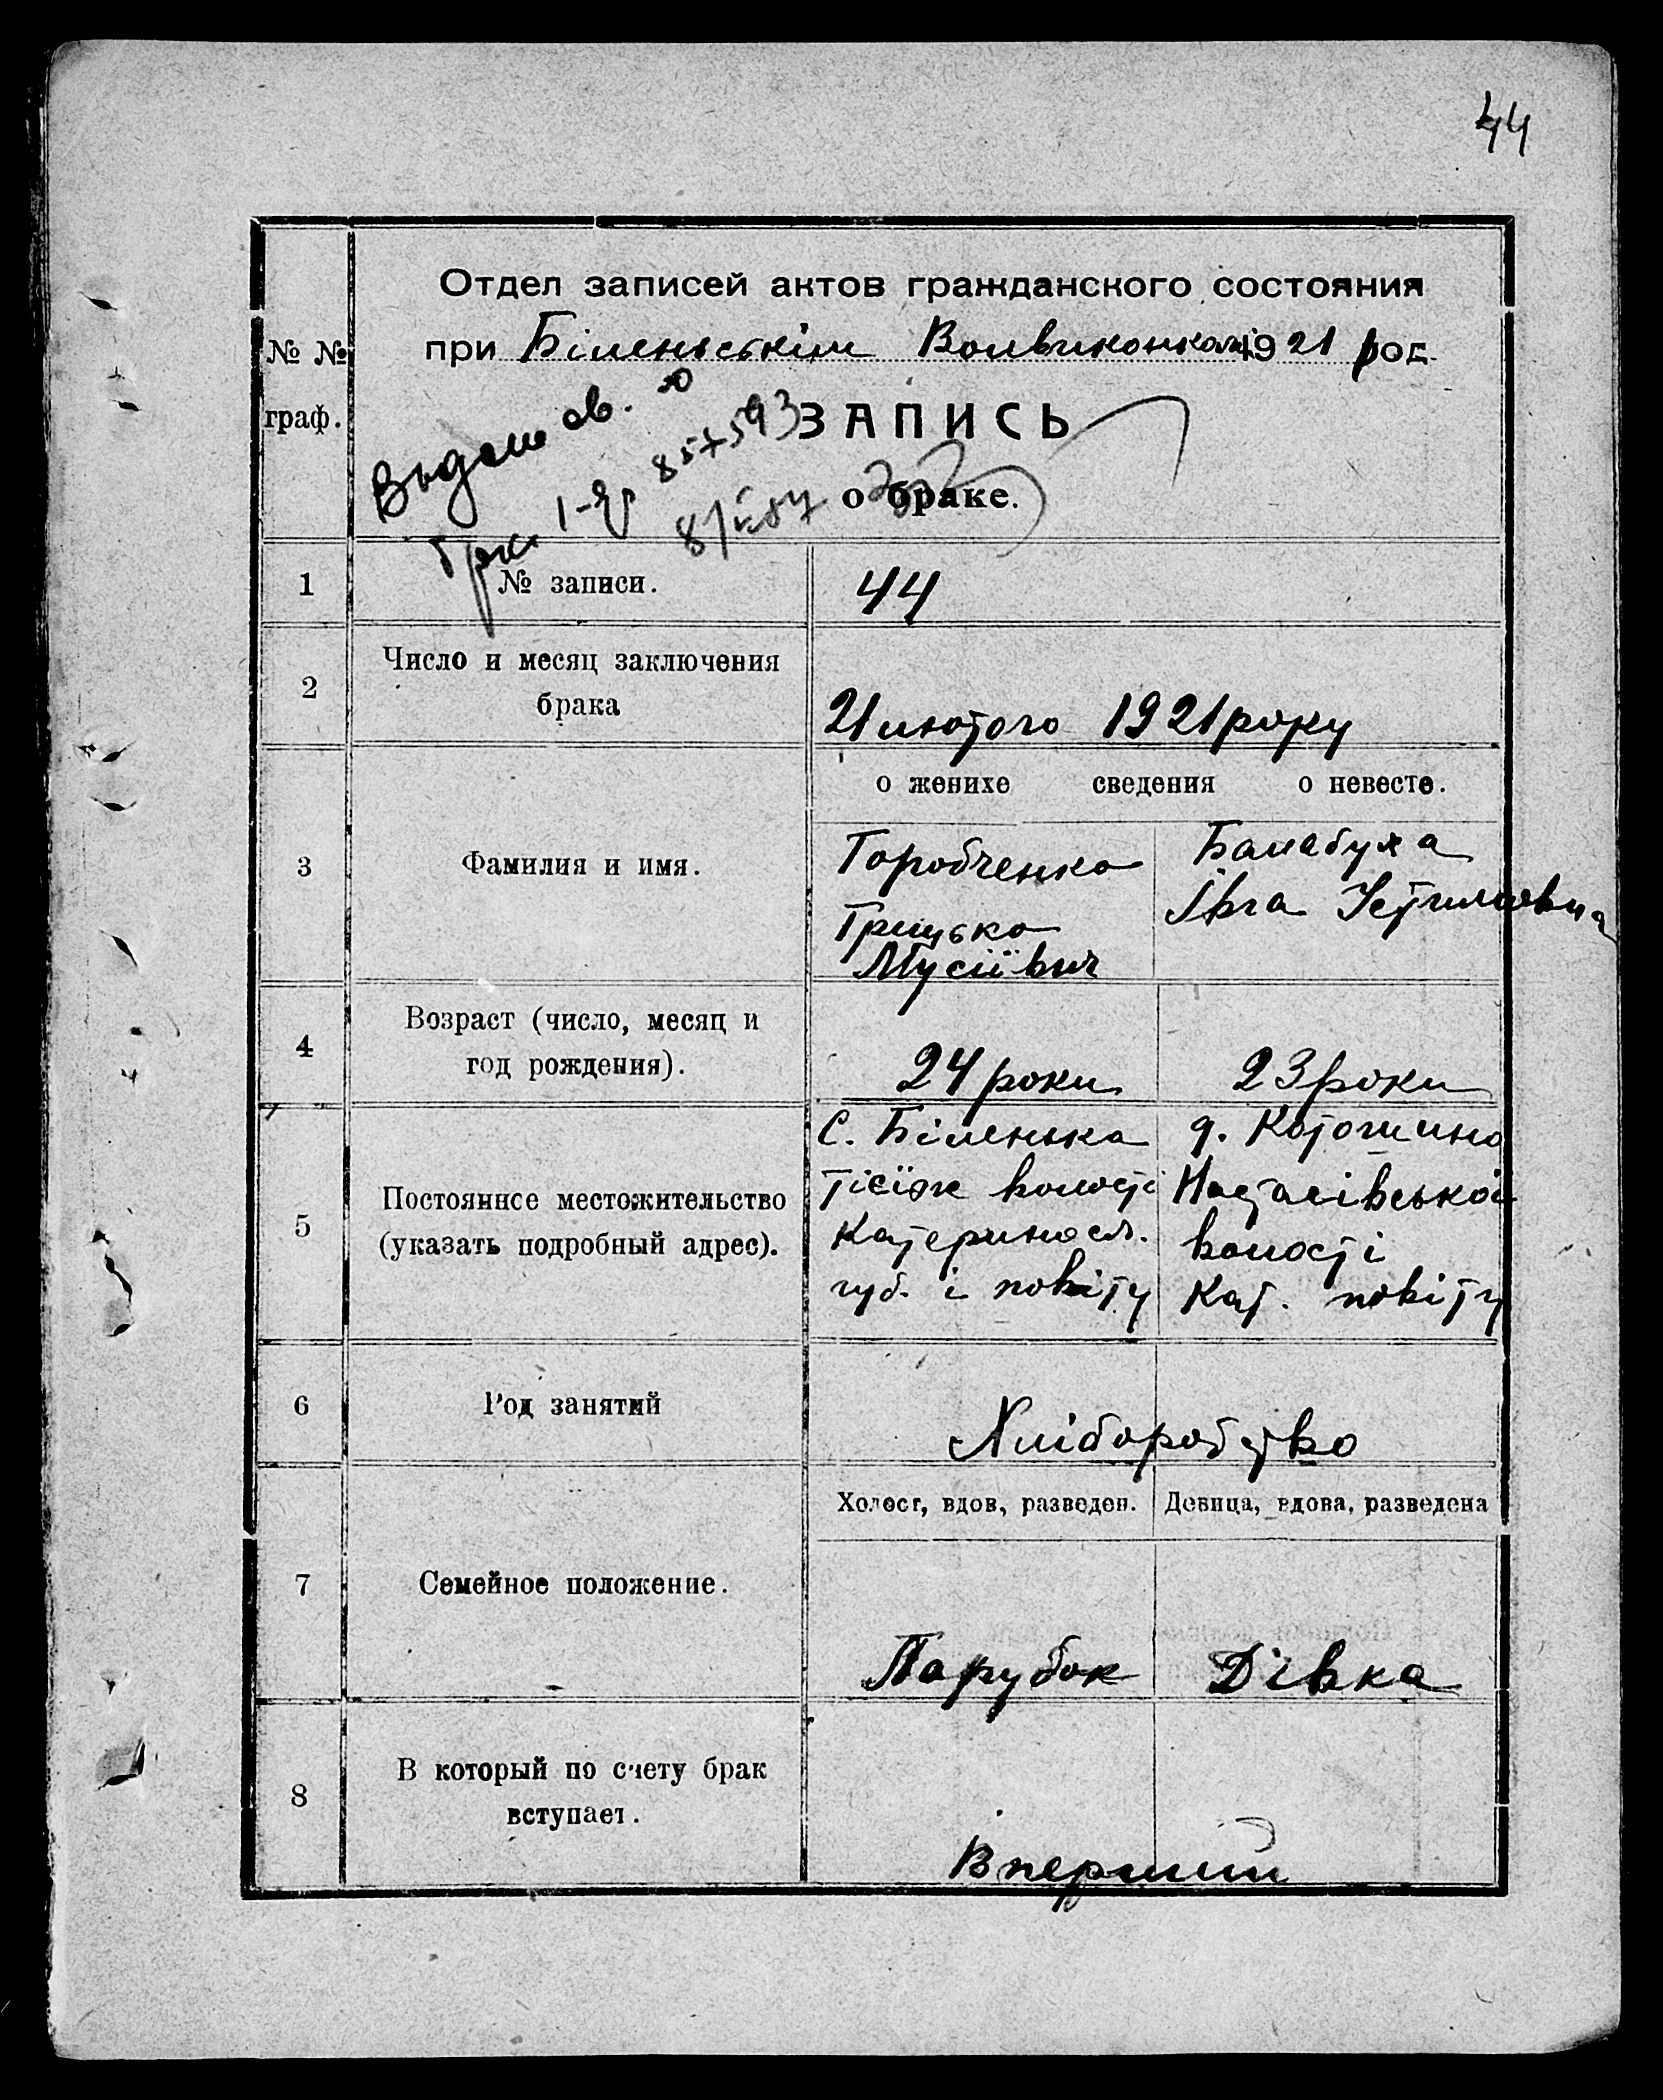 44
Отдел записей актов гражданского состояния
при Біленьськім Волвиконкомі 1921 год.
№ №
граф.
ЗАПИСЬ
о браке.
857593
1 № записи. 44
2 Число и месяц заключения
брака
21 лютого 1921 року
о женихе сведения о невесте.
3 Фамилия и имя.
Горобченко
Грицько
Мусіївич
Балабуха
Івга
4 Возраст (число, месяц и
год рождения).
24 роки 23 роки
5 Постоянное местожительство
(указать подробный адрес).
с. Біленька
тієїж волості
Катериносл.
губ. і повіту
волості
Кат. повіту
6 Род занятий
Хліборобство
Холост, вдов, разведен. Девица, вдова, разведена
7 Семейное положение.
Парубок Дівка
8 В который по счету брак
вступает.
Вперший